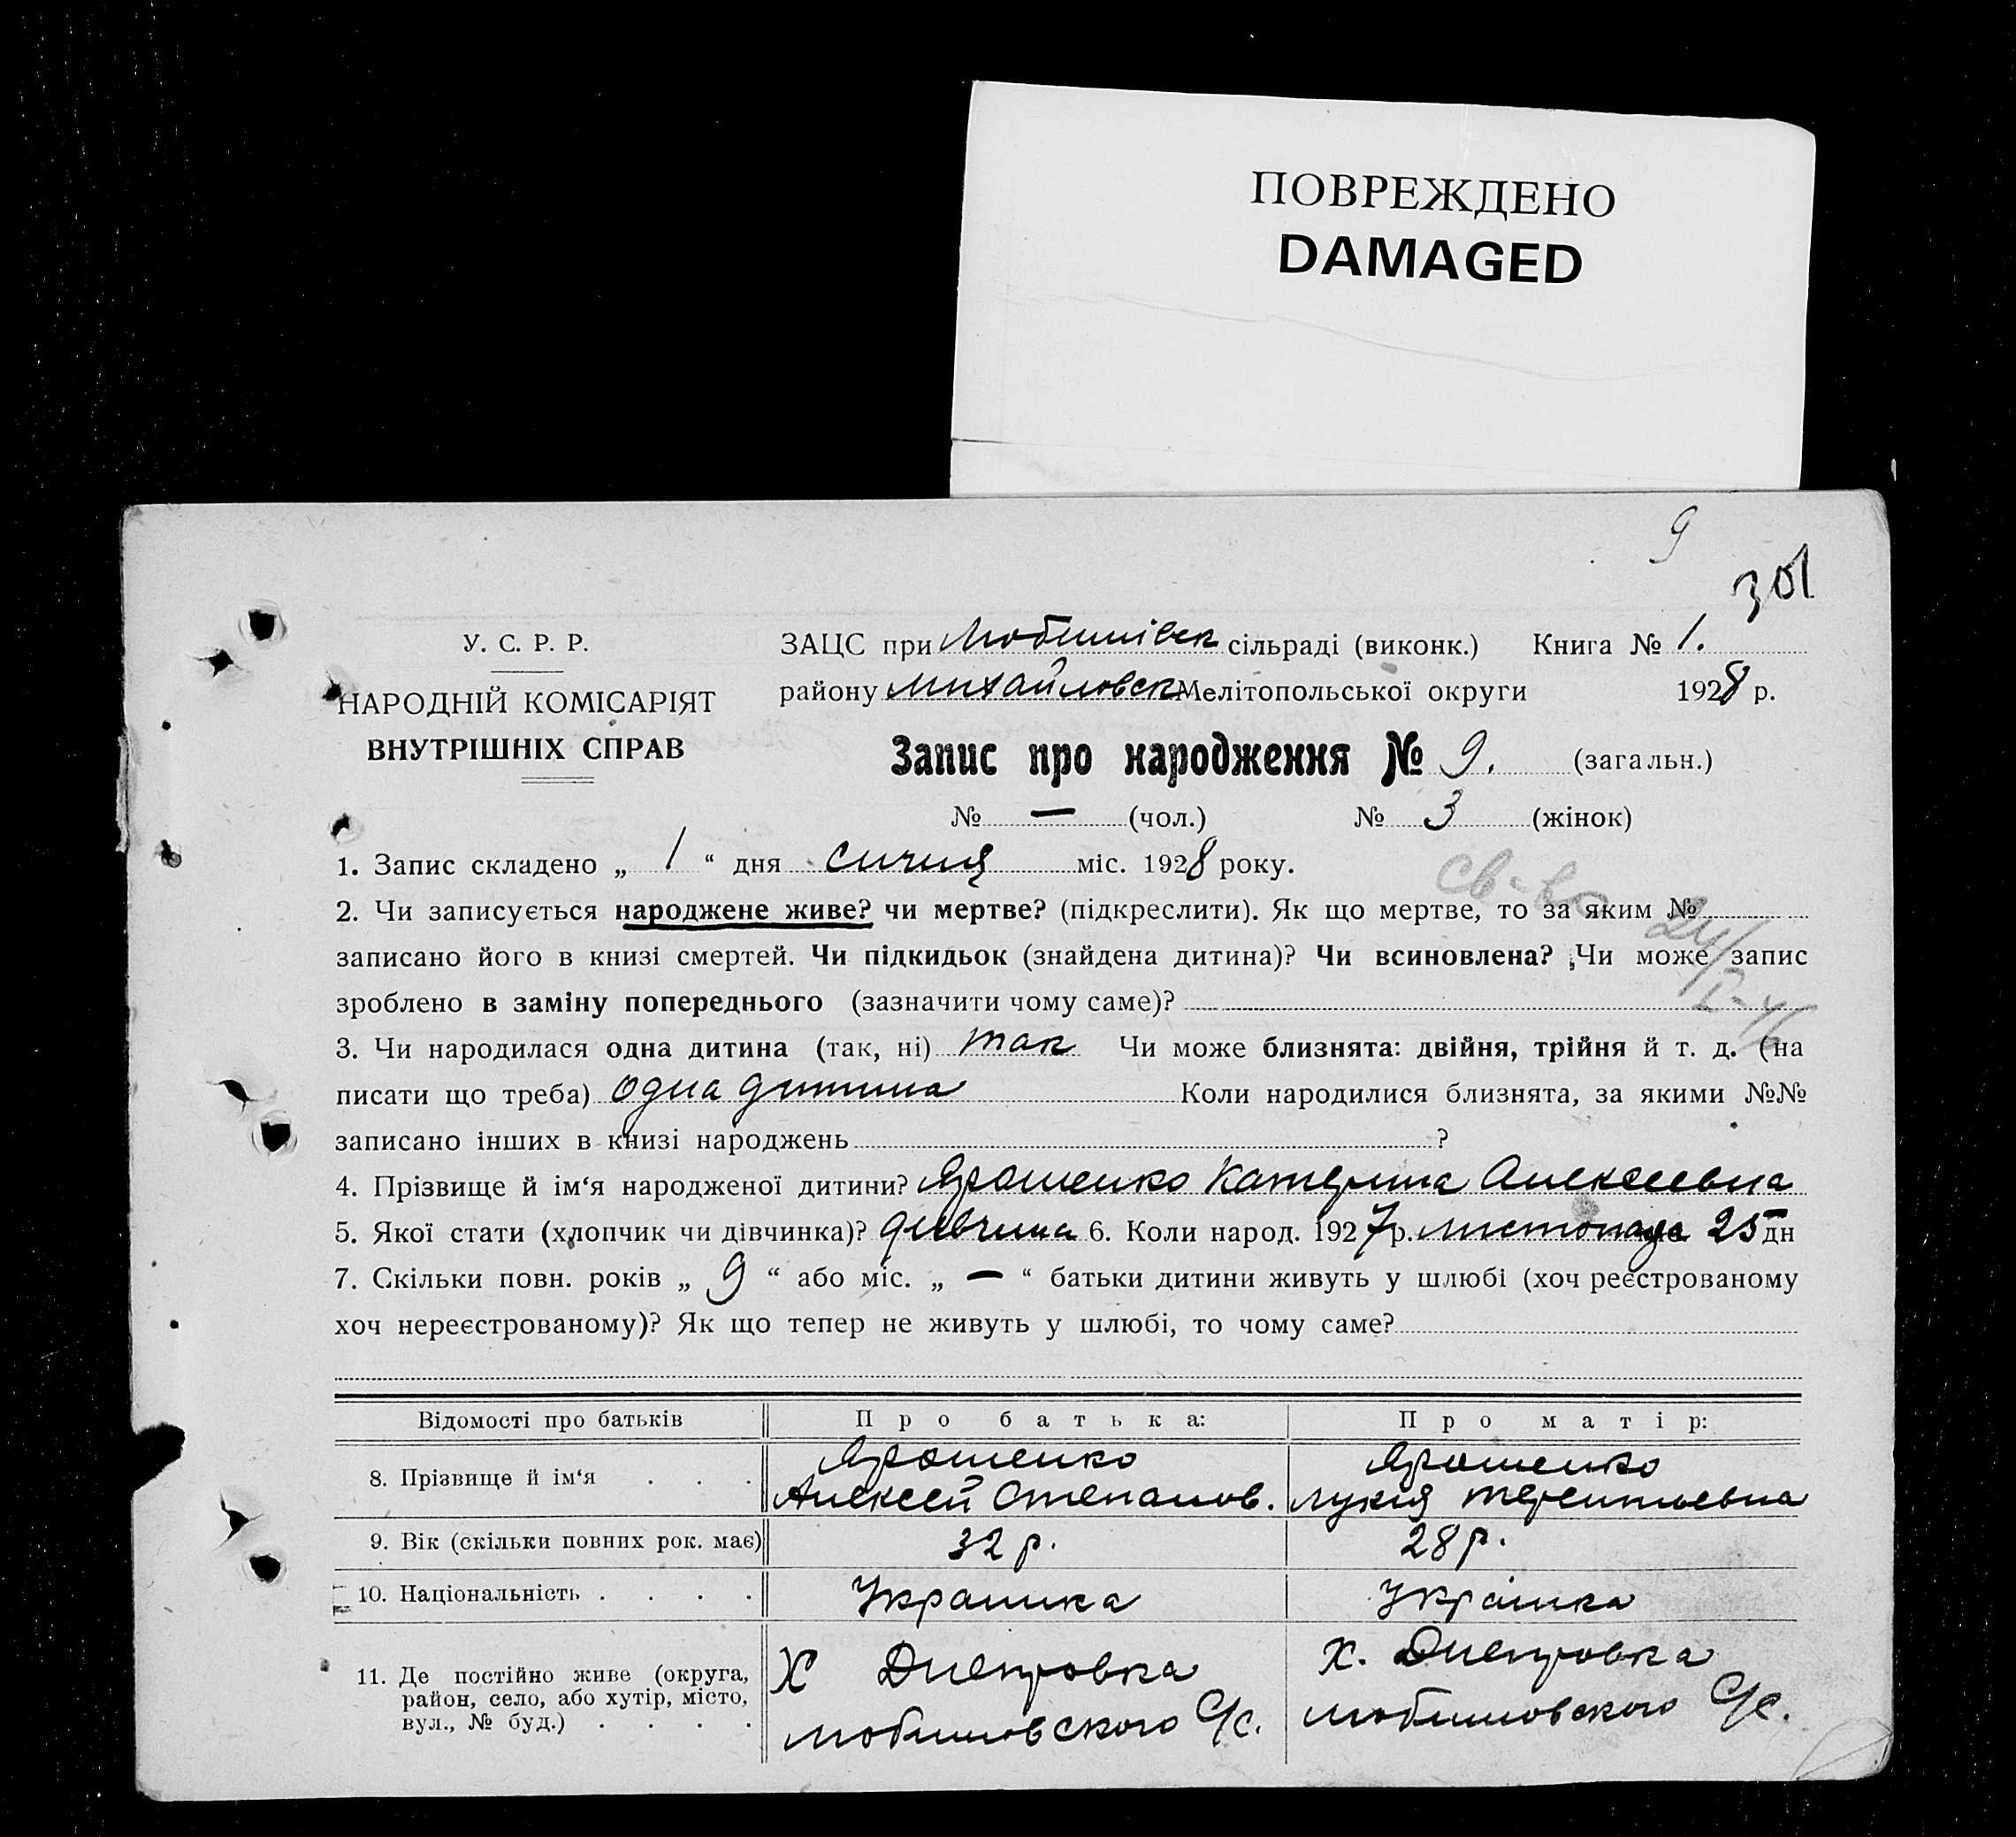 ПОВРЕЖДЕНО
DAMAGED
9
301
У. С. Р. Р.
НАРОДНІЙ КОМІСАРІЯТ
ВНУТРІШНІХ СПРАВ
ЗАЦС при Любимівск сільраді (виконк.) Книга № 1.
району Михайловск Мелітопольської округи 1928 р.
Запис про народження № 9. (загальн.)
№ — (чол.) № 3 (жінок)
1. Запис складено „ 1 “ дня сичня міс. 1928 року.
св-во
2. Чи записується народжене живе? чи мертве? (підкреслити). Як що мертве, то за яким №
24/
записано його в книзі смертей. Чи підкидьок (знайдена дитина)? Чи всиновлена? Чи може запис
зроблено в заміну попереднього (зазначити чому саме)?
3. Чи народилася одна дитина (так, ні) так Чи може близнята: двійня, трійня й т. д. (на
писати що треба) одна дитина Коли народилися близнята, за якими №№
записано інших в книзі народжень ?
4. Прізвище й ім‘я народженої дитини? Ярошенко Катерина Алексеевна
5. Якої стати (хлопчик чи дівчинка)? дивчина 6. Коли народ. 1927 р. листопада 25 дн
7. Скільки повн. років „ 9 “ або міс. „ — “ батьки дитини живуть у шлюбі (хоч реєстрованому
хоч нереєстрованому)? Як що тепер не живуть у шлюбі, то чому саме?
Відомості про батьків Про батька: Про матір:
8. Прізвище й ім‘я . . . Ярошенко Ярошенко
Алексей Степанов. Лукия Терентьевна
9. Вік (скільки повних рок. має) 32 р. 28 р.
10. Національність . . . . Украинка Украінка
11. Де постійно живе (округа, Х Днепровка х. Днепровка
район, село, або хутір, місто,
вул., № буд.) . . . . Любимовского С/с. Любимовского С/с.